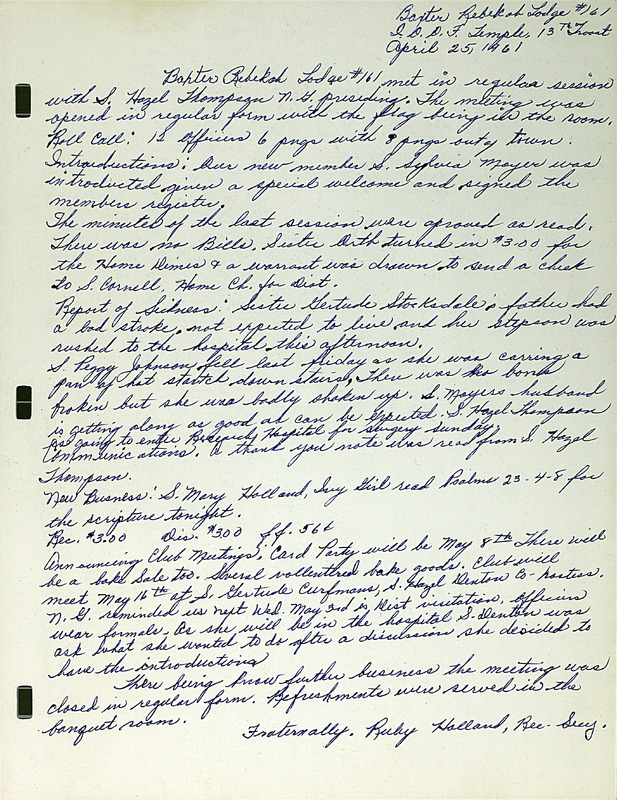 Baxter Rebekah Lodge #161
I.O.O.F. Temple, 13th Troost
April 25, 1961
Baxter Rebekah Lodge #161 met in regular session
with S. Hazel Thompson N.G. presiding. The meeting was
opened in regular form with the flag being in the room.
Roll Call: 12 Officers 6 pngs with 8 pngs out of town.
Introductions: Our new member S. Sylvia Mayer was
introducted given a special welcome and signed the
members registre.
The minutes of the last session were aproved as read.
There was no Bills. Sister Orth turned in $3.00 for
the Home Dimes & a warrant was drawn to send a check
to S. Cornell, Home Ch. for Dist.
Report of Sickness: Sister Gertude Stocksdale's father had
a bad stroke, not expected to live and her stepson was
rushed to the hospital this afternoon.
S. Peggy Johnson fell last friday as she was carring a
pan of hot starch down stairs, There was no bones
broken but she was badly shaken up. S. Mayers husband
is getting along as good as can be expected. S Hazel Thompson
is going to enter Research Hospital for surgery sunday.
Communications. A thank you note was read from S. Hazel
Thompson.
New Busness: S. Mary Holland, Ivy Girl read Psalms 23-4-8 for
the scripture tonight.
Rec. $3.00 Dis. $3.00 ff. 56¢
Announcing Club Meetings: Card Party will be May 8th There will
be a bake Sale too. Several vollentered bake goods. Club will
meet May 16th at S. Gertrude Curfmans, S. Hazel Denton Co-hostess.
N.G. reminded us next Wed. May 3rd is Dist visitation, Officers
wear formals. As she will be in the hospital S. Denton was
ask what she wanted to do after a discussion she decided to
have the introductions
There being know further business the meeting was
closed in regular form. Refreshments were served in the
banquet room.
Fraternally. Ruby Holland, Rec. Secy.